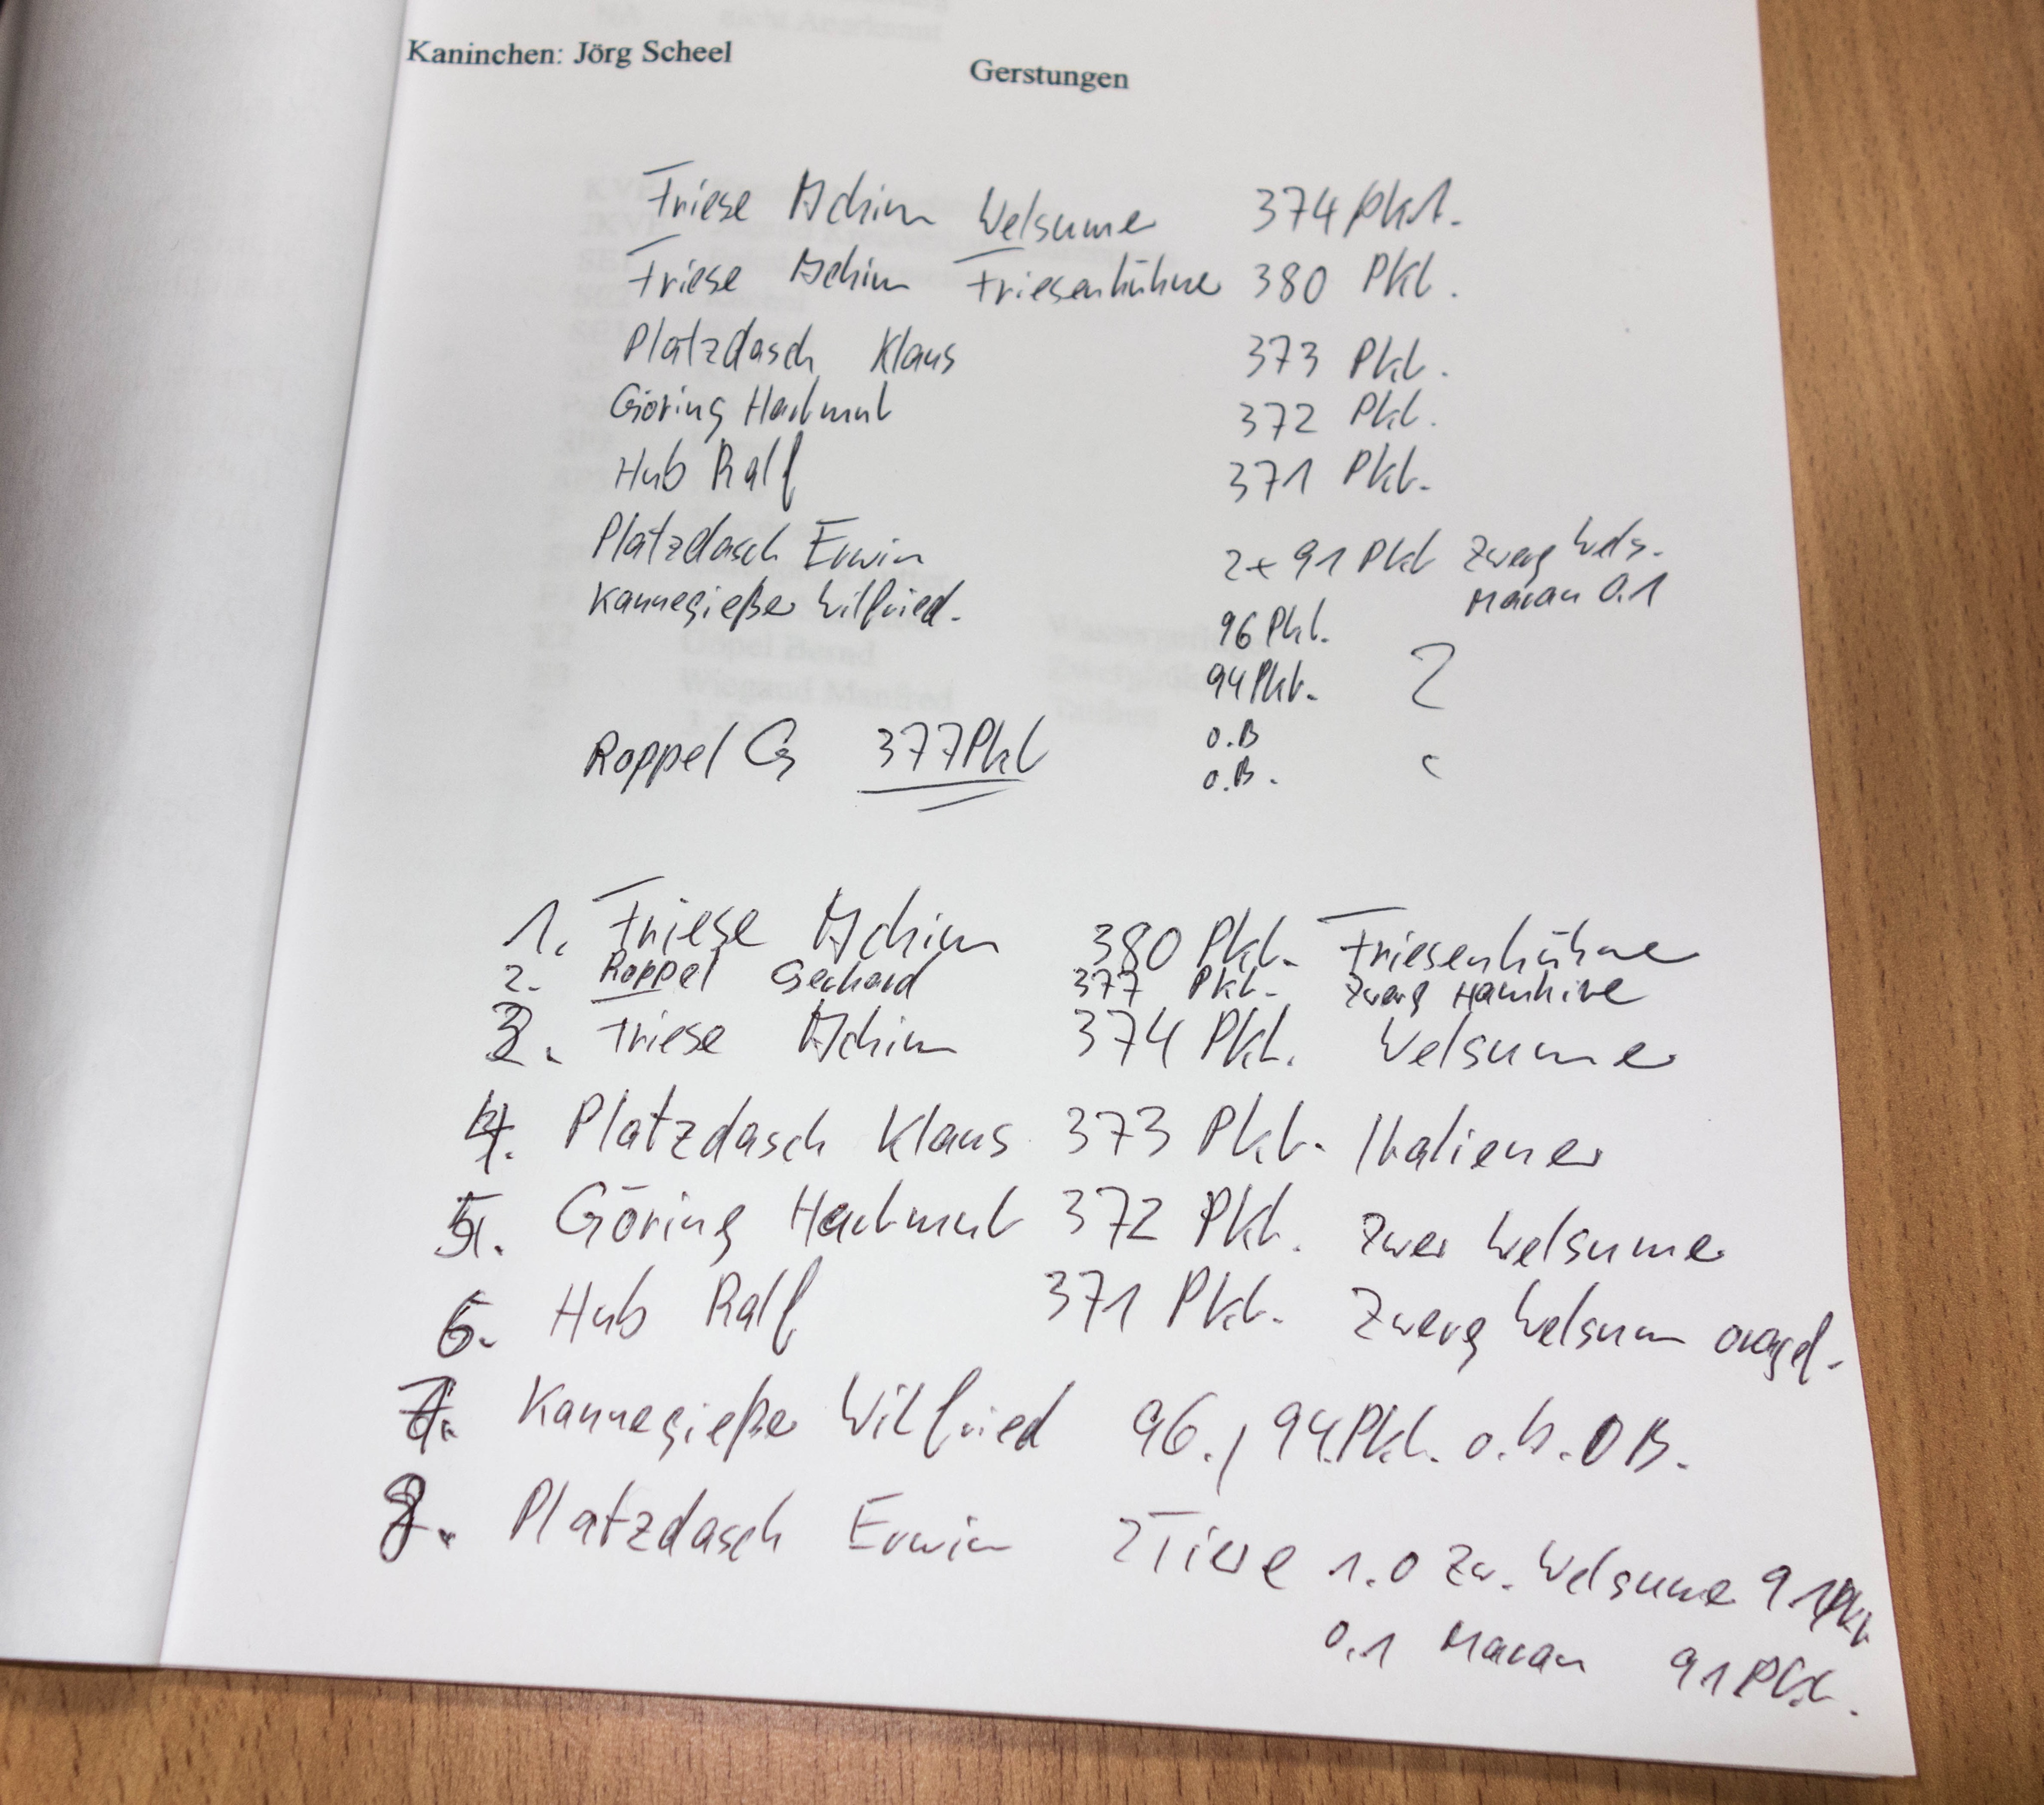 Kaninchen: Jörg Scheel Gerstungen
Friese Achim Welsumer 374 Pkt.
Friese Achim Friesenhühner 380 Pkt.
Platzdasch Klaus 373 Pkt.
Göring Hartmut 372 Pkt.
Hub Ralf 371 Pkt.
Platzdasch Erwin 2x 91 Pkt Zwerg Wels.
Maran 0.1
Kannegießer Wilfried. 96 Pkt.
94 Pkt. ?
Roppel G 377 Pkt o.B
o.B.
1. Friese Achim 380 Pkt. Friesenhühner
2. Roppel Gerhard 377 Pkt. Zwerg
3. Friese Achim 374 Pkt. Welsumer
4. Platzdasch Klaus 373 Pkt. Italiener
5. Göring Hartmut 372 Pkt. Zwer Welsumer
6. Hub Ralf 371 Pkt. Zwerg Welsum
7. Kannegießer Wilfried 96., 94 Pkt. o.b. O B.
8. Platzdasch Erwin 2 Tiere 1.0 Zw. Welsumer 91 Pkt
0.1 Maran 91 Pkt.